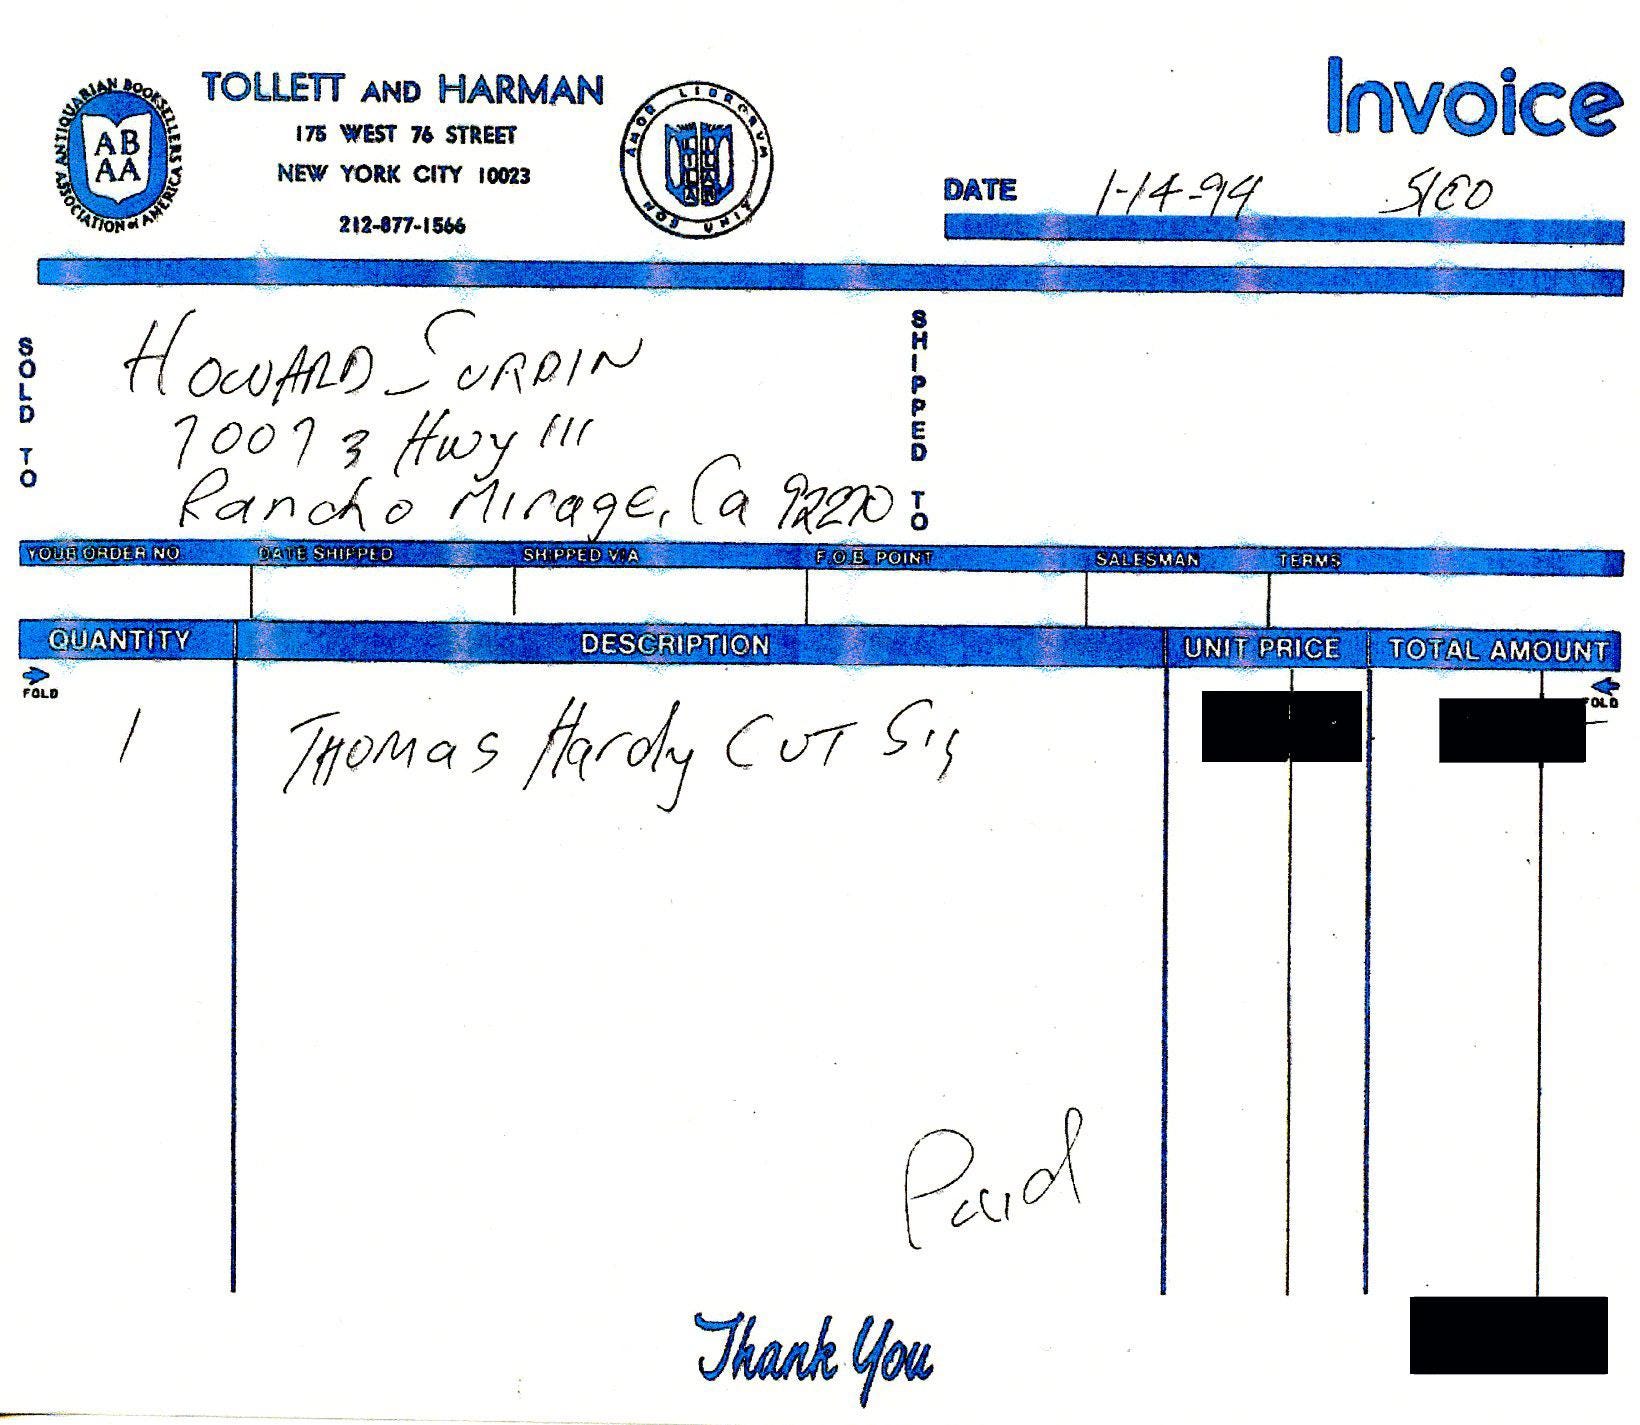 ANTIQUARIAN BOOKSELLERS ASSOCIATION of AMERICA
AB
AA
TOLLETT AND HARMAN
175 WEST 76 STREET
NEW YORK CITY 10023
212-877-1566
AMOR LIBRORVM NOS UNIT
Invoice
DATE 1-14-94
SOLD TO
HOWARD SURDIN
70073 Hwy 111
Rancho Mirage, Ca 92270
SHIPPED TO
YOUR ORDER NO. DATE SHIPPED SHIPPED VIA F.O.B. POINT SALESMAN TERMS
QUANTITY DESCRIPTION UNIT PRICE TOTAL AMOUNT
FOLD
1 THOMAS Hardy CUT Sig
Paid
Thank You